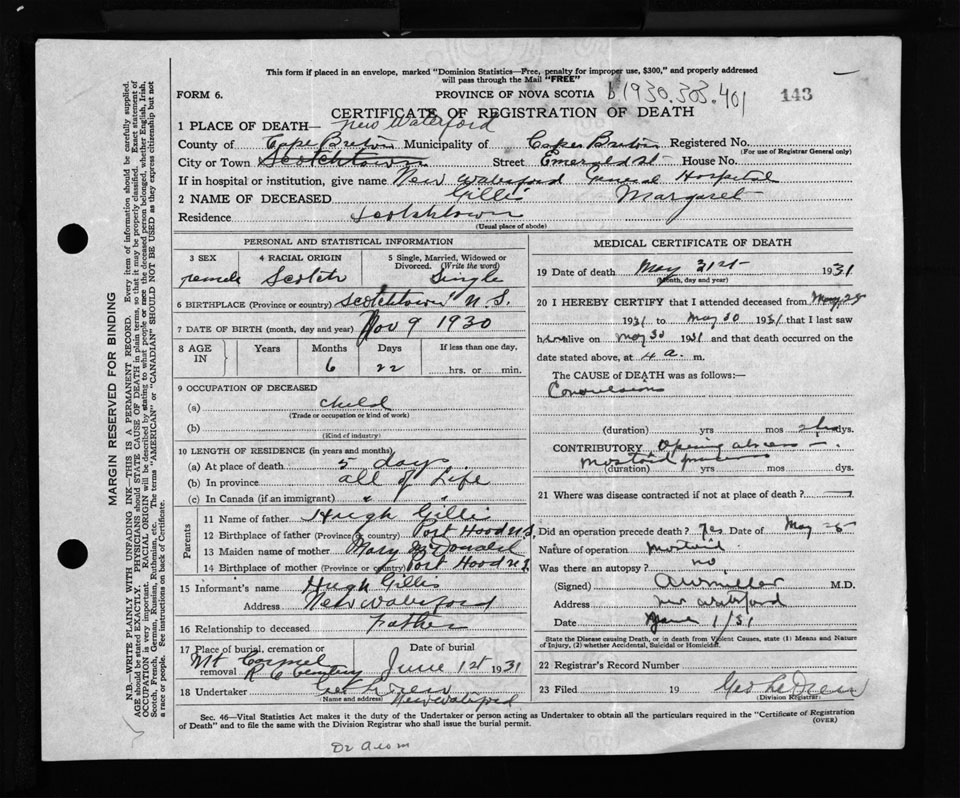 This form if placed in an envelope, marked "Dominion Statistics—Free, penalty for improper use, $300," and properly addressed
will pass through the Mail "FREE"
FORM 6.
PROVINCE OF NOVA SCOTIA b1930.303.401
143
CERTIFICATE OF REGISTRATION OF DEATH
1 PLACE OF DEATH— New Waterford
County of Cape Breton Municipality of Cape Breton Registered No.
(For use of Registrar General only)
City or Town Scotchtown Street Emerald St House No.
If in hospital or institution, give name New Waterford General Hospital
2 NAME OF DECEASED Gillis Margaret
Residence Scotchtown
(Usual place of abode)
PERSONAL AND STATISTICAL INFORMATION
3 SEX 4 RACIAL ORIGIN 5 Single, Married, Widowed or
Divorced. (Write the word)
female Scotch Single
6 BIRTHPLACE (Province or country) Scotchtown N.S.
7 DATE OF BIRTH (month, day and year) Nov 9 1930
8 AGE IN Years Months Days If less than one day,
6 22 hrs. or min.
9 OCCUPATION OF DECEASED
(a) child
(Trade or occupation or kind of work)
(b)
(Kind of industry)
10 LENGTH OF RESIDENCE (in years and months)
(a) At place of death 5 days
(b) In province all of Life
(c) In Canada (if an immigrant) " "
Parents
11 Name of father Hugh Gillis
12 Birthplace of father (Province or country) Port Hood N.S.
13 Maiden name of mother Mary McDonald
14 Birthplace of mother (Province or country) Port Hood N.S.
15 Informant's name Hugh Gillis
Address New Waterford
16 Relationship to deceased Father
17 Place of burial, cremation or removal Date of burial
Mt Carmel
R C Cemetery June 1st 1931
18 Undertaker
Name and address New Waterford
MEDICAL CERTIFICATE OF DEATH
19 Date of death May 31st 1931
(Month, day and year)
20 I HEREBY CERTIFY that I attended deceased from May 25
1931 to May 30 1931 that I last saw
her alive on May 30 1931 and that death occurred on the
date stated above, at 4 a. m.
The CAUSE of DEATH was as follows:—
Convulsions
(duration) yrs mos 2 days.
CONTRIBUTORY Opening abscess
mastoid process
(duration) yrs mos dys.
21 Where was disease contracted if not at place of death?
Did an operation precede death? Yes Date of May 25
Nature of operation Mastoid
Was there an autopsy? no
(Signed) A W Miller M.D.
Address New Waterford
Date June 1/31
State the Disease causing Death, or in death from Violent Causes, state (1) Means and Nature
of Injury, (2) whether Accidental, Suicidal or Homicidal.
22 Registrar's Record Number
23 Filed 19
(Division Registrar)
Sec. 46—Vital Statistics Act makes it the duty of the Undertaker or person acting as Undertaker to obtain all the particulars required in the "Certificate of Registration
of Death" and to file the same with the Division Registrar who shall issue the burial permit.
(OVER)
MARGIN RESERVED FOR BINDING
N.B.—WRITE PLAINLY WITH UNFADING INK—THIS IS A PERMANENT RECORD. Every item of information should be carefully supplied.
AGE should be stated EXACTLY. PHYSICIANS should STATE CAUSE OF DEATH in plain terms, so that it may be properly classified. Exact statement of
OCCUPATION is very important. RACIAL ORIGIN will be described by stating to what people or race the deceased person belonged, whether English, Irish,
Scotch, French, German, Russian, Ruthenian, etc. The terms "AMERICAN" or "CANADIAN" SHOULD NOT BE USED as they express citizenship but not
a race or people. See instructions on back of Certificate.